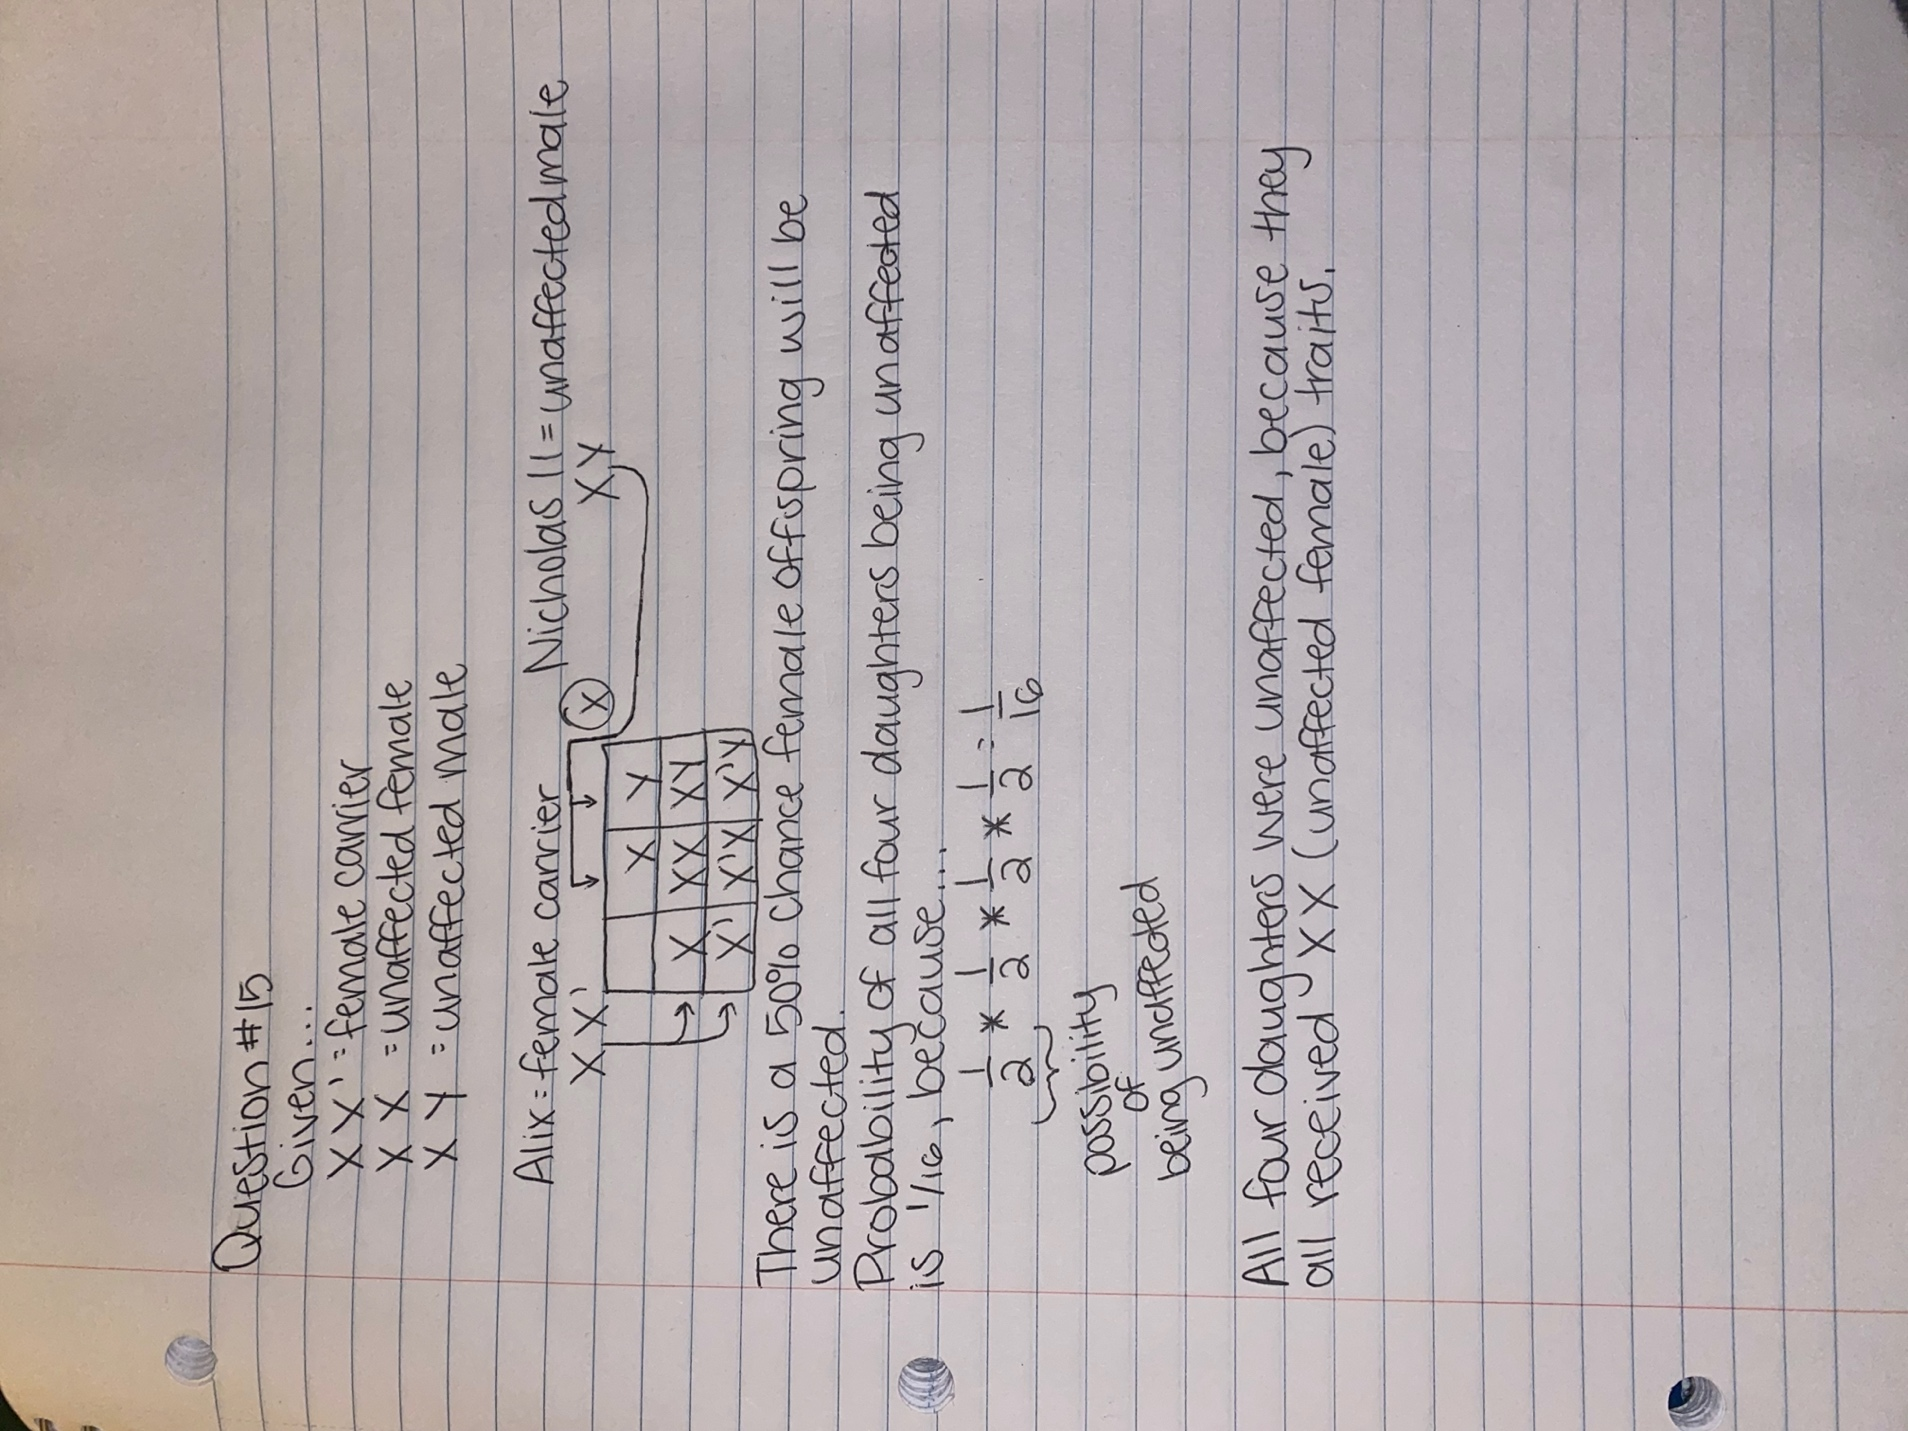 Question #15
Given...
X X' = female carrier
X X = unaffected female
X Y = unaffected male
Alix = female carrier Nicholas II = unaffected male
X X' X XY
X Y
X XX XY
X' X'X X'Y
There is a 50% chance female offspring will be
unaffected.
Probability of all four daughters being unaffected
is 1/16, because...
1/2 * 1/2 * 1/2 * 1/2 = 1/16
possibility
of
being unaffected
All four daughters were unaffected, because they
all received XX (unaffected female) traits.